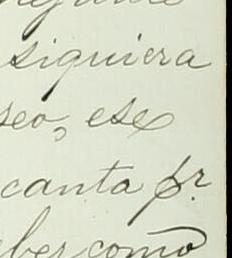 siquiera
seo, ese
canta pr.
ber como